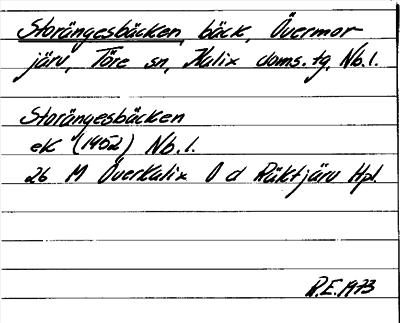 Storängesbäcken, bäck, Övermor-
järv, Töre sn, Kalix doms.tg, Nb.l.
Storängesbäcken
ek (1952) Nb.l.
26 M Överkalix O d Räktjärv Hpl.
R.E. 1973